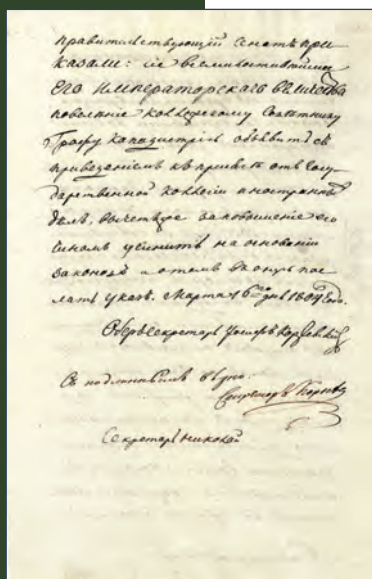 Правительствующій Сенатъ при-
казали: се
ЕГО Императорскаго величества
повеленіе Коллежскому Советнику
Графу Каподистріе объявить съ
приведеніемъ къ присяге отъ Госу-
дарственной Коллегіи иностранныхъ
делъ, вычетъ же за повышеніе его
чиномъ учинить на основаніи
законовъ и о томъ въ оную пос-
лать указъ. Марта 16го дня 1809 года.
Оберъ Секретарь
Съ подлиннымъ верно:
Секретарь Николай